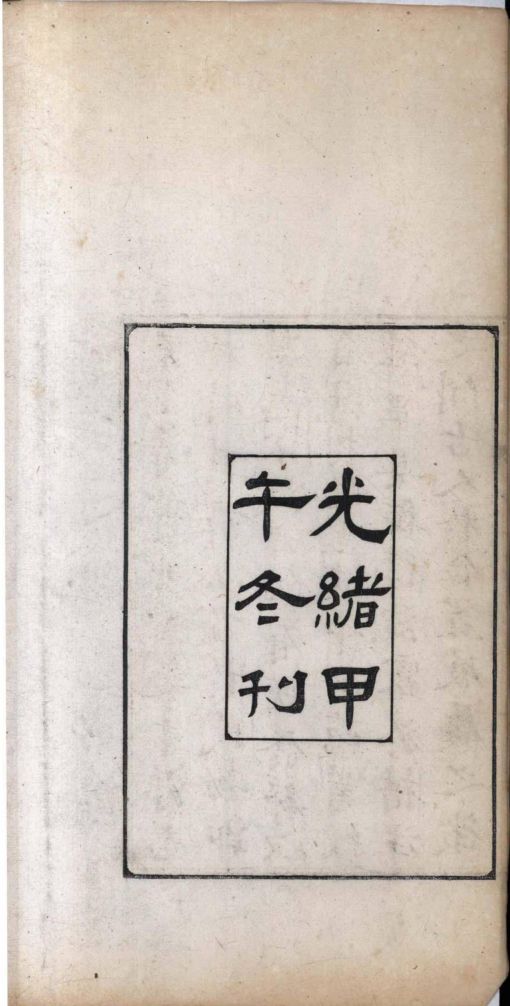 光緒甲
午冬刊